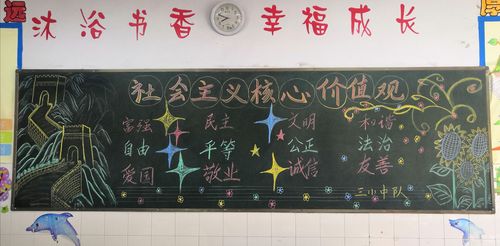 沐浴书香 幸福成长
社会主义核心价值观
富强 民主 文明 和谐
自由 平等 公正 法治
爱国 敬业 诚信 友善
三小中队